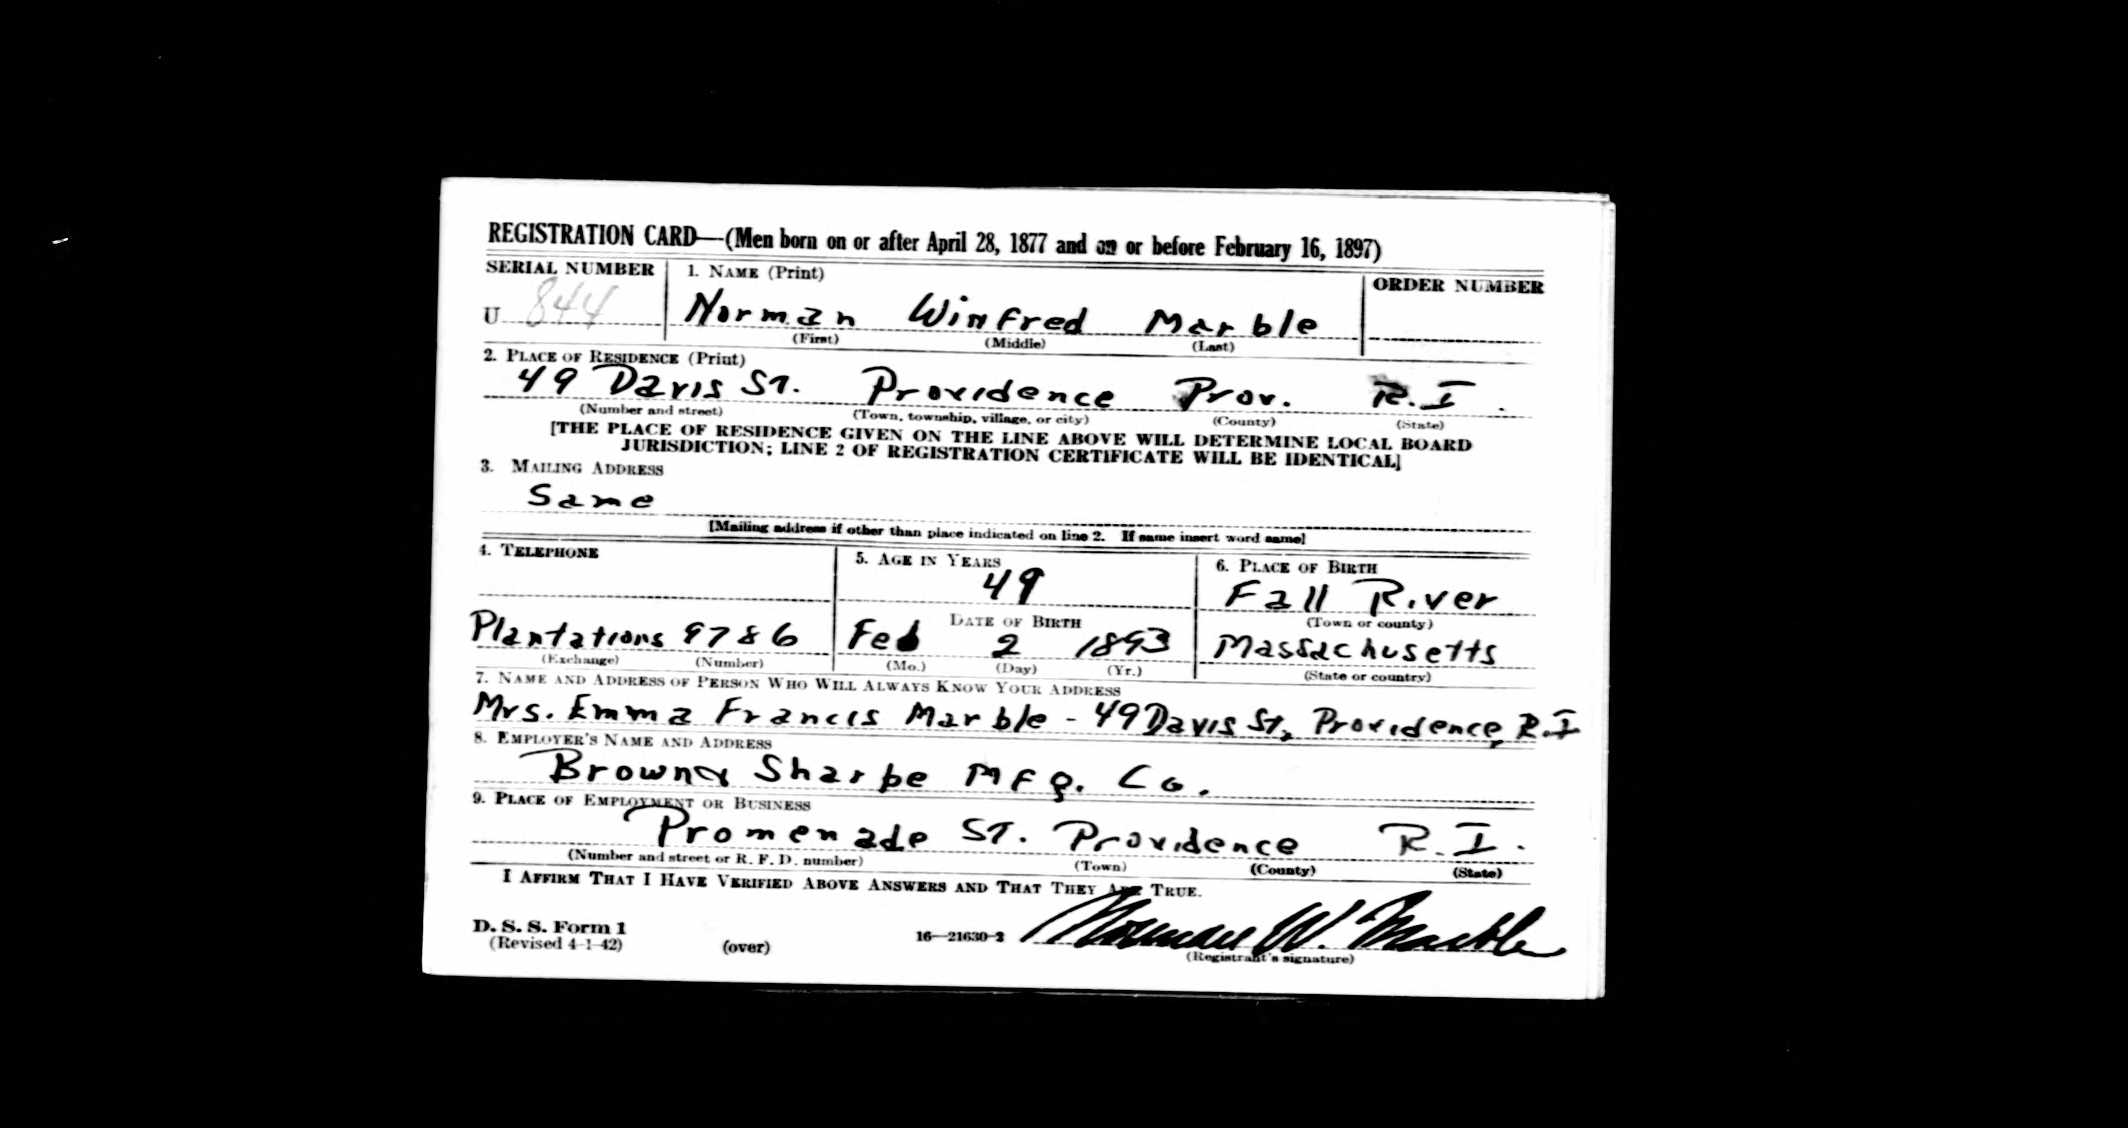 REGISTRATION CARD—(Men born on or after April 28, 1877 and on or before February 16, 1897)
SERIAL NUMBER 1. NAME (Print) ORDER NUMBER
U 844 Norman Winfred Marble
(First) (Middle) (Last)
2. PLACE OF RESIDENCE (Print)
49 Davis St. Providence Prov. R.I.
(Number and street) (Town, township, village, or city) (County) (State)
[THE PLACE OF RESIDENCE GIVEN ON THE LINE ABOVE WILL DETERMINE LOCAL BOARD
JURISDICTION; LINE 2 OF REGISTRATION CERTIFICATE WILL BE IDENTICAL]
3. MAILING ADDRESS
Same
[Mailing address if other than place indicated on line 2. If same insert word same]
4. TELEPHONE 5. AGE IN YEARS 6. PLACE OF BIRTH
49 Fall River
DATE OF BIRTH (Town or county)
Plantations 9786 Feb 2 1893 Massachusetts
(Exchange) (Number) (Mo.) (Day) (Yr.) (State or country)
7. NAME AND ADDRESS OF PERSON WHO WILL ALWAYS KNOW YOUR ADDRESS
Mrs. Emma Francis Marble - 49 Davis St, Providence, R.I
8. EMPLOYER'S NAME AND ADDRESS
Brown & Sharpe Mfg. Co.
9. PLACE OF EMPLOYMENT OR BUSINESS
Promenade St. Providence R.I.
(Number and street or R. F. D. number) (Town) (County) (State)
I AFFIRM THAT I HAVE VERIFIED ABOVE ANSWERS AND THAT THEY ARE TRUE.
D. S. S. Form 1
(Revised 4-1-42) (over) 16—21630-2 Norman W. Marble
(Registrant's signature)